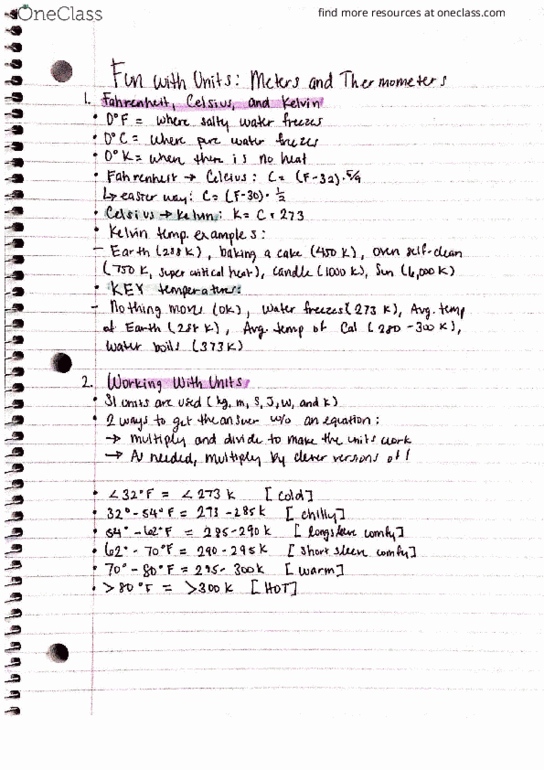 OneClass
find more resources at oneclass.com
Fun with Units: Meters and Thermometers
1. Fahrenheit, Celsius, and Kelvin
• 0°F = where salty water freezes
• 0°C = where pure water freezes
• 0°K = when there is no heat
• Fahrenheit → Celcius: C = (F-32)·5/9
↳ easier way: C = (F-30)·1/2
• Celsius → Kelvin: K = C + 273
• Kelvin temp. examples:
- Earth (288 K), baking a cake (450 K), oven self-clean
(750 K, super critical heat), candle (1000 K), Sun (6,000 K)
• KEY temperatures:
- Nothing moves (0K), water freezes (273 K), Avg. temp
of Earth (288 K), Avg. temp of Cal (280-300 K),
water boils (373 K)
2. Working With Units
• SI units are used (kg, m, S, J, W, and K)
• 2 ways to get the answer w/o an equation:
→ multiply and divide to make the units work
→ As needed, multiply by clever versions of 1
• <32°F = <273 K [cold]
• 32°-54°F = 273-285K [chilly]
• 54°-62°F = 285-290K [longsleeve comfy]
• 62°-70°F = 290-295K [short sleeve comfy]
• 70°-80°F = 295-300K [warm]
• >80°F = >300K [HOT]